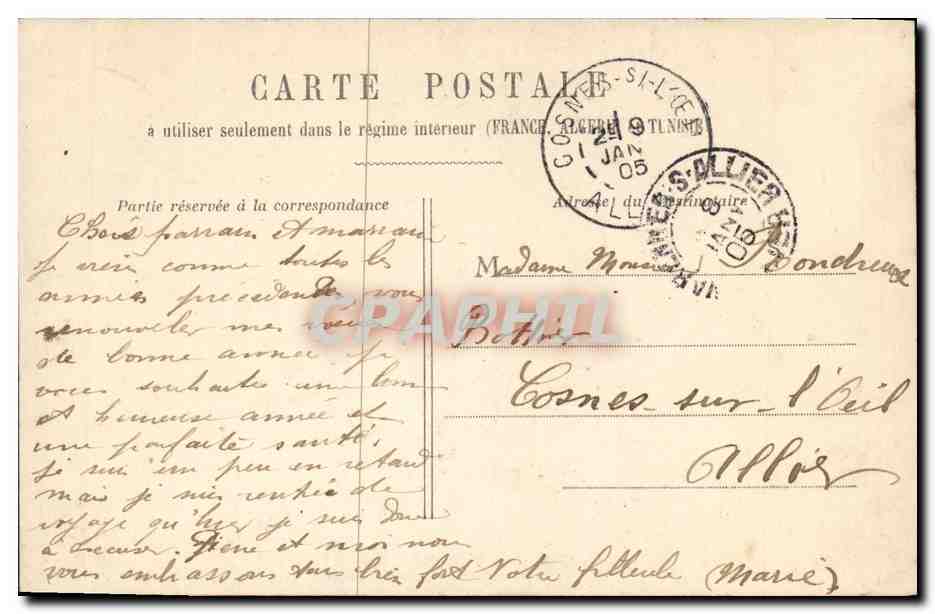 CARTE POSTALE
à utiliser seulement dans le régime intérieur (FRANCE, ALGERIE & TUNISIE
COSNES-S-L'ŒIL
2e 9
JAN
05
ALL
VARENNES-S-ALLIER
8
JANV
05
Partie réservée à la correspondance
Adresse du Destinataire
Chers parrain et marraine
Je viens comme toutes les
années précédentes vous
renouveler mes voeux
de bonne année je
vous souhaite une bonne
et heureuse année et
une parfaite santé,
je suis un peu en retard
mais je suis rentrée de
voyage qu'hier je suis donc
à excuser. Pierre et moi nous
vous embrassons tous bien fort Votre filleule (Marie)
Madame Bondreux
Cosnes-sur-l'Oeil
Allier
CPAPHIL